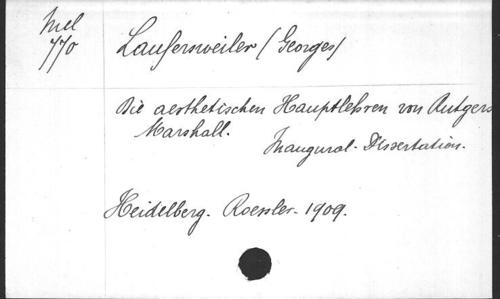 Mel
770
Laufersweiler (Georges)
Die aesthetischen Hauptlehren von Rutgers
Marshall.
Inaugural-Dissertation.
Heidelberg. Roessler. 1909.